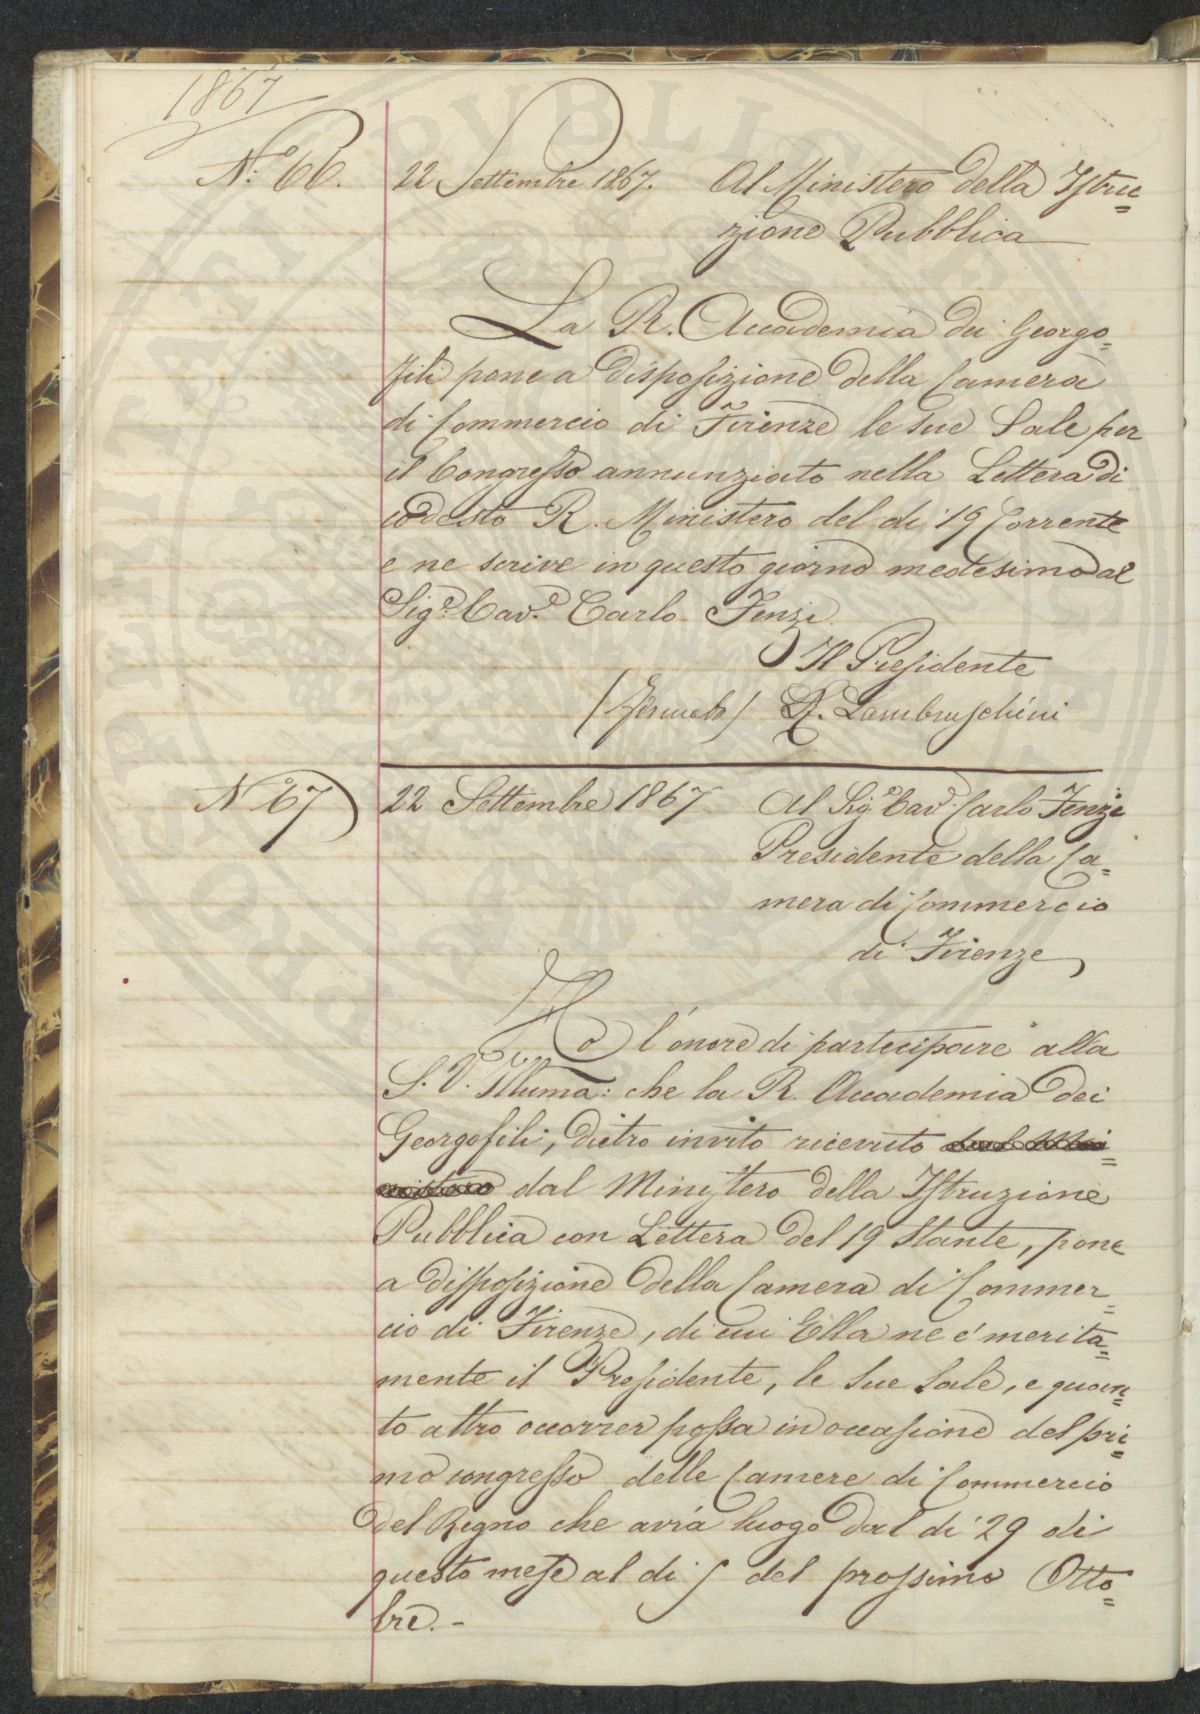 1867
N.° 66. 22 Settembre 1867. Al Ministero della Istru=
zione Pubblica
La R. Accademia dei Georgo=
fili pone a disposizione della Camera
di Commercio di Firenze le sue Sale per
il Congresso annunziato nella Lettera di
codesto R. Ministero del dì 19 Corrente
e ne scrive in questo giorno medesimo al
Sig.e Cav.e Carlo Fenzi.
Il Presidente
(Firmato) R. Lambruschini
N.° 67 22 Settembre 1867 Al Sig.e Cav.e Carlo Fenzi
Presidente della Ca=
mera di Commercio
di Firenze
Ho l'onore di partecipare alla
S. V. Illuma: che la R. Accademia dei
Georgofili, dietro invito ricevuto dal Mi=
nistero dal Ministero della Istruzione
Pubblica con Lettera del 19 Stante, pone
a disposizione della Camera di Commer=
cio di Firenze, di cui Ella ne é merita=
mente il Presidente, le sue Sale, e quan=
to altro occorrer possa in occasione del pri=
mo congresso delle Camere di Commercio
del Regno che avrà luogo dal dì 29 di
questo mese al dì 5 del prossimo Otto=
bre.-